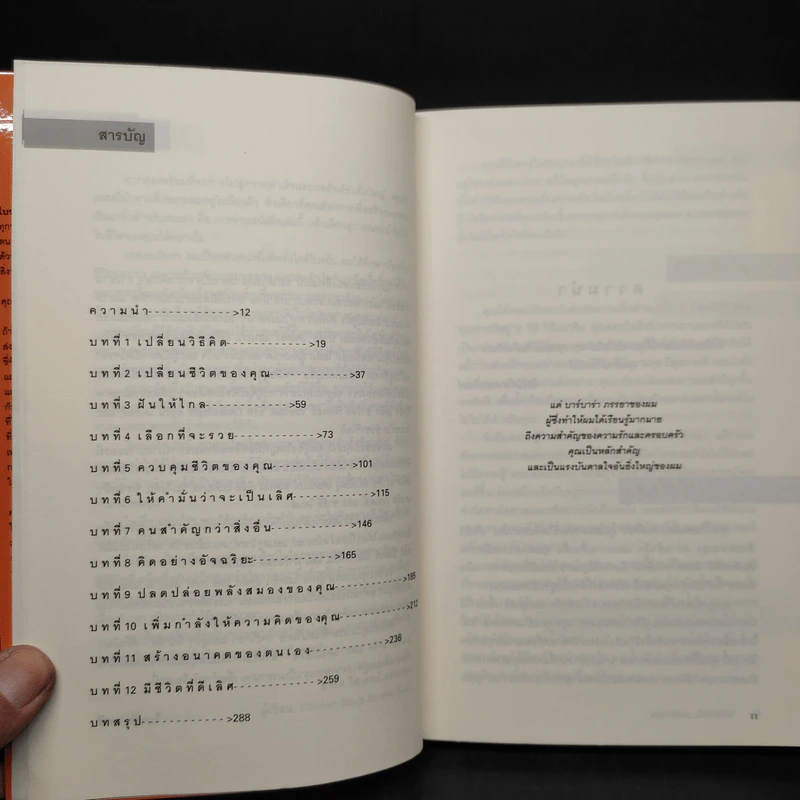 สารบัญ
ความนำ------------>12
บทที่1 เปลี่ยนวิธีคิด------------>19
บทที่2 เปลี่ยนชีวิตของคุณ------------>37
บทที่3 ฝันให้ไกล------------>59
บทที่4 เลือกที่จะรวย------------>73
บทที่5 ควบคุมชีวิตของคุณ------------>101
บทที่6 ให้คำมั่นว่าจะเป็นเลิศ------------>115
บทที่7 คนสำคัญกว่าสิ่งอื่น------------>146
บทที่8 คิดอย่างอัจฉริยะ------------>165
บทที่9 ปลดปล่อยพลังสมองของคุณ------------>185
บทที่10 เพิ่มกำลังให้ความคิดของคุณ------------>212
บทที่11 สร้างอนาคตของตนเอง------------>236
บทที่12 มีชีวิตที่ดีเลิศ------------>259
บทสรุป------------>288
แด่ บาร์บาร่า ภรรยาของผม
ผู้ซึ่งทำให้ผมได้เรียนรู้มากมาย
ถึงความสำคัญของความรักและครอบครัว
คุณเป็นหลักสำคัญ
และเป็นแรงบันดาลใจอันยิ่งใหญ่ของผม
11